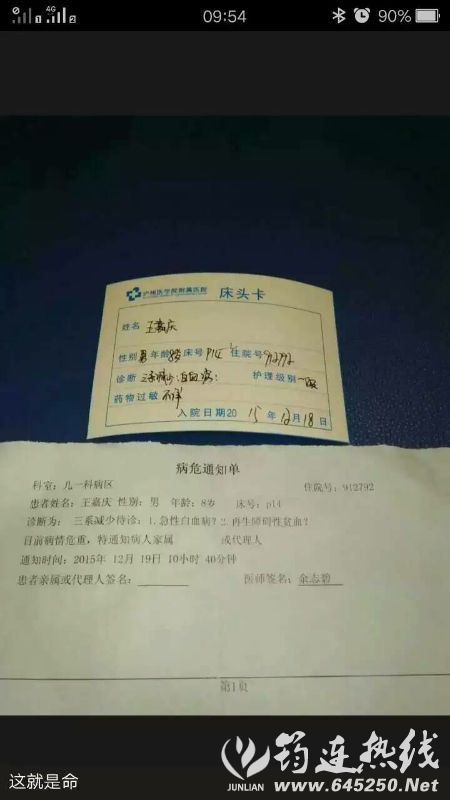 4G
09:54
90%
泸州医学院附属医院 床头卡
姓名 王嘉庆
性别 男 年龄 8岁 床号 P14 住院号 912792
诊断 白血病? 护理级别 一级
药物过敏 不详
入院日期 2015年12月18日
病危通知单
科室:儿一科病区 住院号:912792
患者姓名:王嘉庆 性别:男 年龄:8岁 床号:p14
诊断为: 三系减少待诊:1.急性白血病?2.再生障碍性贫血?
目前病情危重,特通知病人家属 或代理人
通知时间:2015年 12月 19日 10小时 40分钟
患者亲属或代理人签名: 医师签名:余志碧
第1页
这就是命
筠连热线
JUNLIAN www.645250.Net